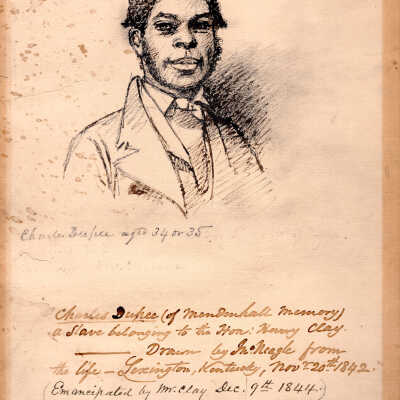 Charles Dupee aged 34 or 35.
Charles Dupee (of Mendenhall Memory)
a Slave belonging to the Hon: Henry Clay.
Drawn by Jn Neagle from
the life — Lexington, Kentucky, Novr 20th 1842.
(Emancipated by Mr. Clay Dec. 9th 1844.)